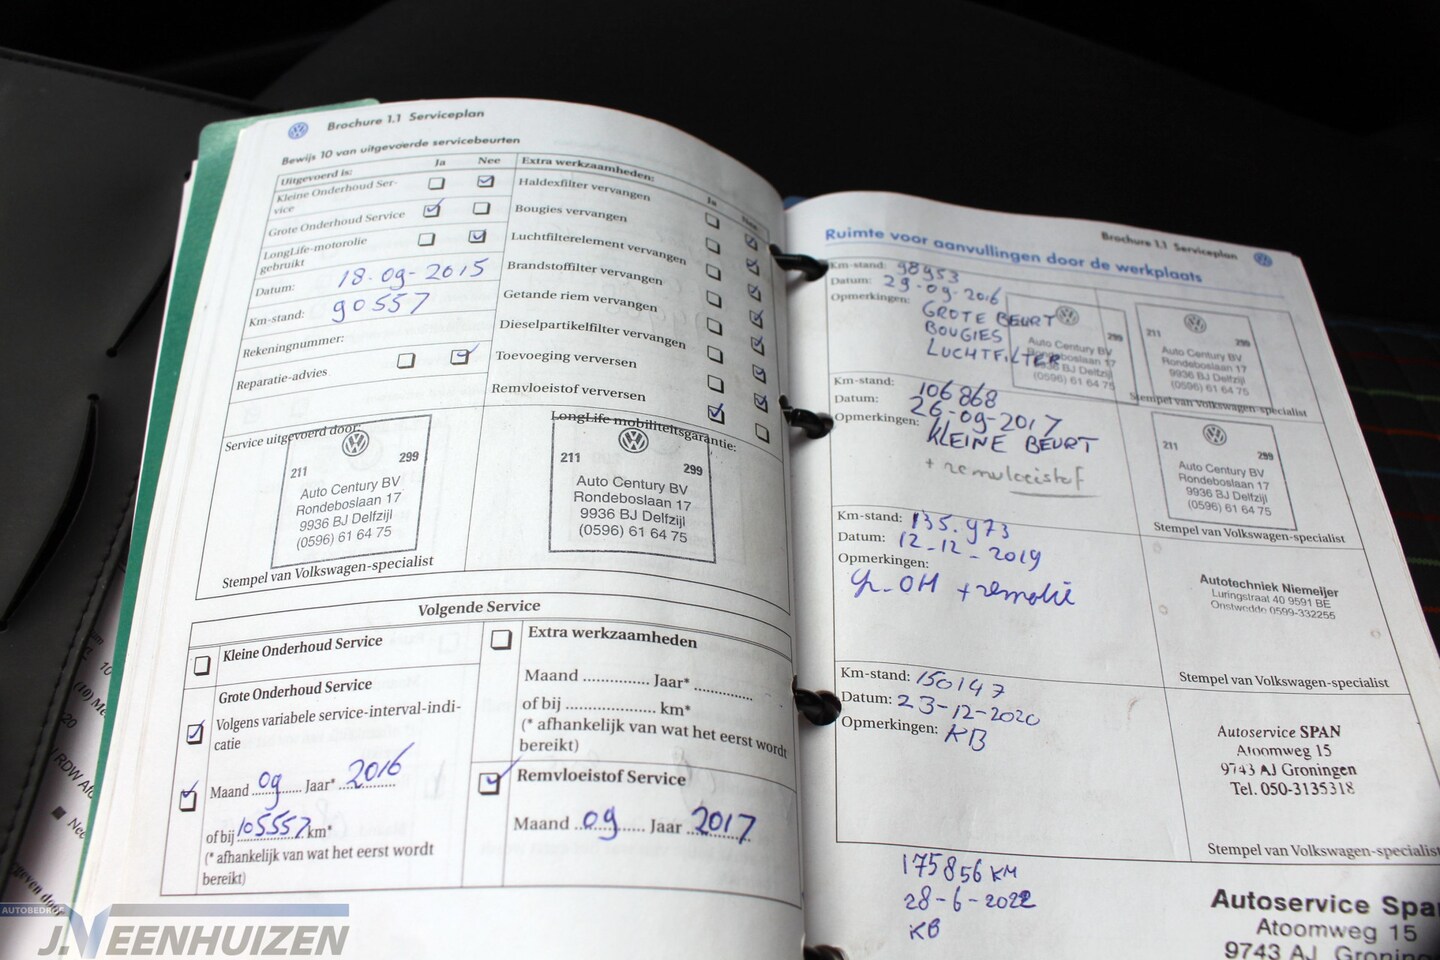 Brochure 1.1 Serviceplan
Bewijs 10 van uitgevoerde servicebeurten
Uitgevoerd is:
Ja Nee
Kleine Onderhoud Ser-
vice
Grote Onderhoud Service
LongLife-motorolie
gebruikt
Datum: 18-09-2015
Km-stand: 90557
Rekeningnummer:
Reparatie-advies
Extra werkzaamheden:
Ja Nee
Haldexfilter vervangen
Bougies vervangen
Luchtfilterelement vervangen
Brandstoffilter vervangen
Getande riem vervangen
Dieselpartikelfilter vervangen
Toevoeging verversen
Remvloeistof verversen
Service uitgevoerd door:
211 299
Auto Century BV
Rondeboslaan 17
9936 BJ Delfzijl
(0596) 61 64 75
Stempel van Volkswagen-specialist
LongLife mobiliteitsgarantie:
211 299
Auto Century BV
Rondeboslaan 17
9936 BJ Delfzijl
(0596) 61 64 75
Volgende Service
Kleine Onderhoud Service
Grote Onderhoud Service
Volgens variabele service-interval-indi-
catie
Maand 09 Jaar* 2016
of bij 105557 km*
(* afhankelijk van wat het eerst wordt
bereikt)
Extra werkzaamheden
Maand Jaar*
of bij km*
(* afhankelijk van wat het eerst wordt
bereikt)
Remvloeistof Service
Maand 09 Jaar 2017
Brochure 1.1 Serviceplan
Ruimte voor aanvullingen door de werkplaats
Km-stand: 98953
Datum: 29-09-2016
Opmerkingen: GROTE BEURT
BOUGIES
LUCHTFILTER
299
Auto Century BV
Rondeboslaan 17
9936 BJ Delfzijl
(0596) 61 64 75
211 299
Auto Century BV
Rondeboslaan 17
9936 BJ Delfzijl
(0596) 61 64 75
Stempel van Volkswagen-specialist
Km-stand: 106868
Datum: 26-09-2017
Opmerkingen: KLEINE BEURT
+ remvloeistof
211 299
Auto Century BV
Rondeboslaan 17
9936 BJ Delfzijl
(0596) 61 64 75
Stempel van Volkswagen-specialist
Km-stand: 135.973
Datum: 12-12-2019
Opmerkingen:
OH + remolie
Autotechniek Niemeijer
Luringstraat 40 9591 BE
Onstwedde 0599-332255
Stempel van Volkswagen-specialist
Km-stand: 150147
Datum: 23-12-2020
Opmerkingen: KB
Autoservice SPAN
Atoomweg 15
9743 AJ Groningen
Tel. 050-3135318
Stempel van Volkswagen-specialist
175856 KM
28-6-2022
KB
Autoservice Spa
Atoomweg 15
9743 AJ Groning
AUTOBEDRIJF
J.VEENHUIZEN